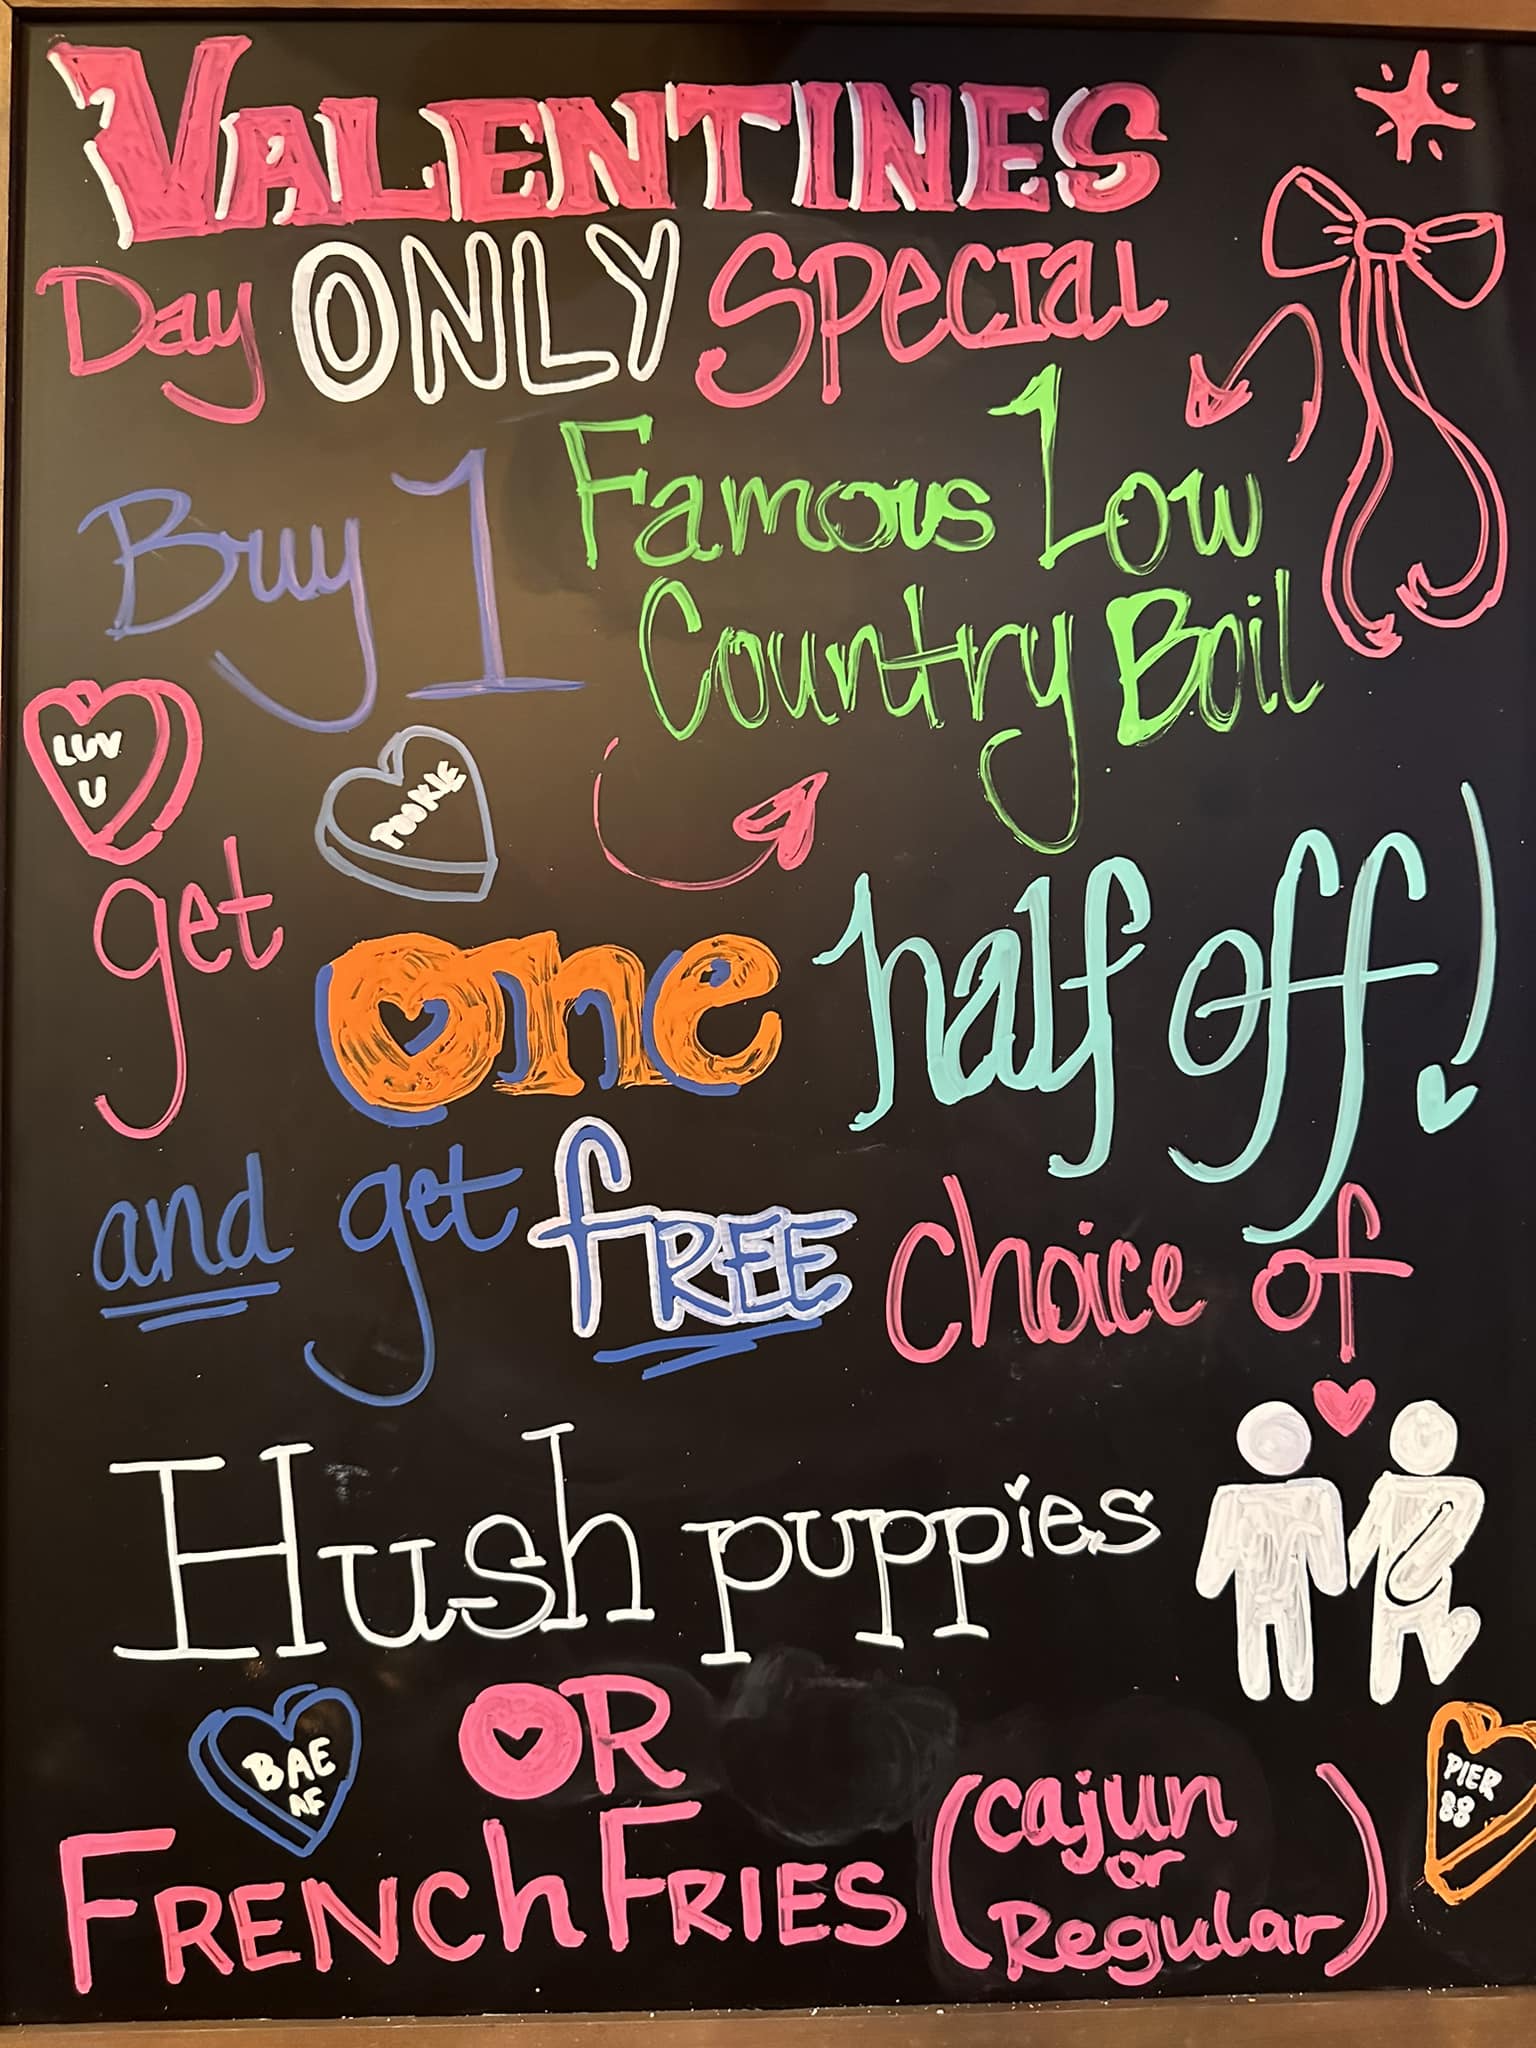 VALENTINES
Day ONLY Special
Buy 1 Famous Low
Country Boil
LUV
U
POOKIE
get one half off!
and get fREE choice of
Hush puppies
OR
BAE
AF
PIER
88
FRENCh FRIES (cajun
or
Regular)